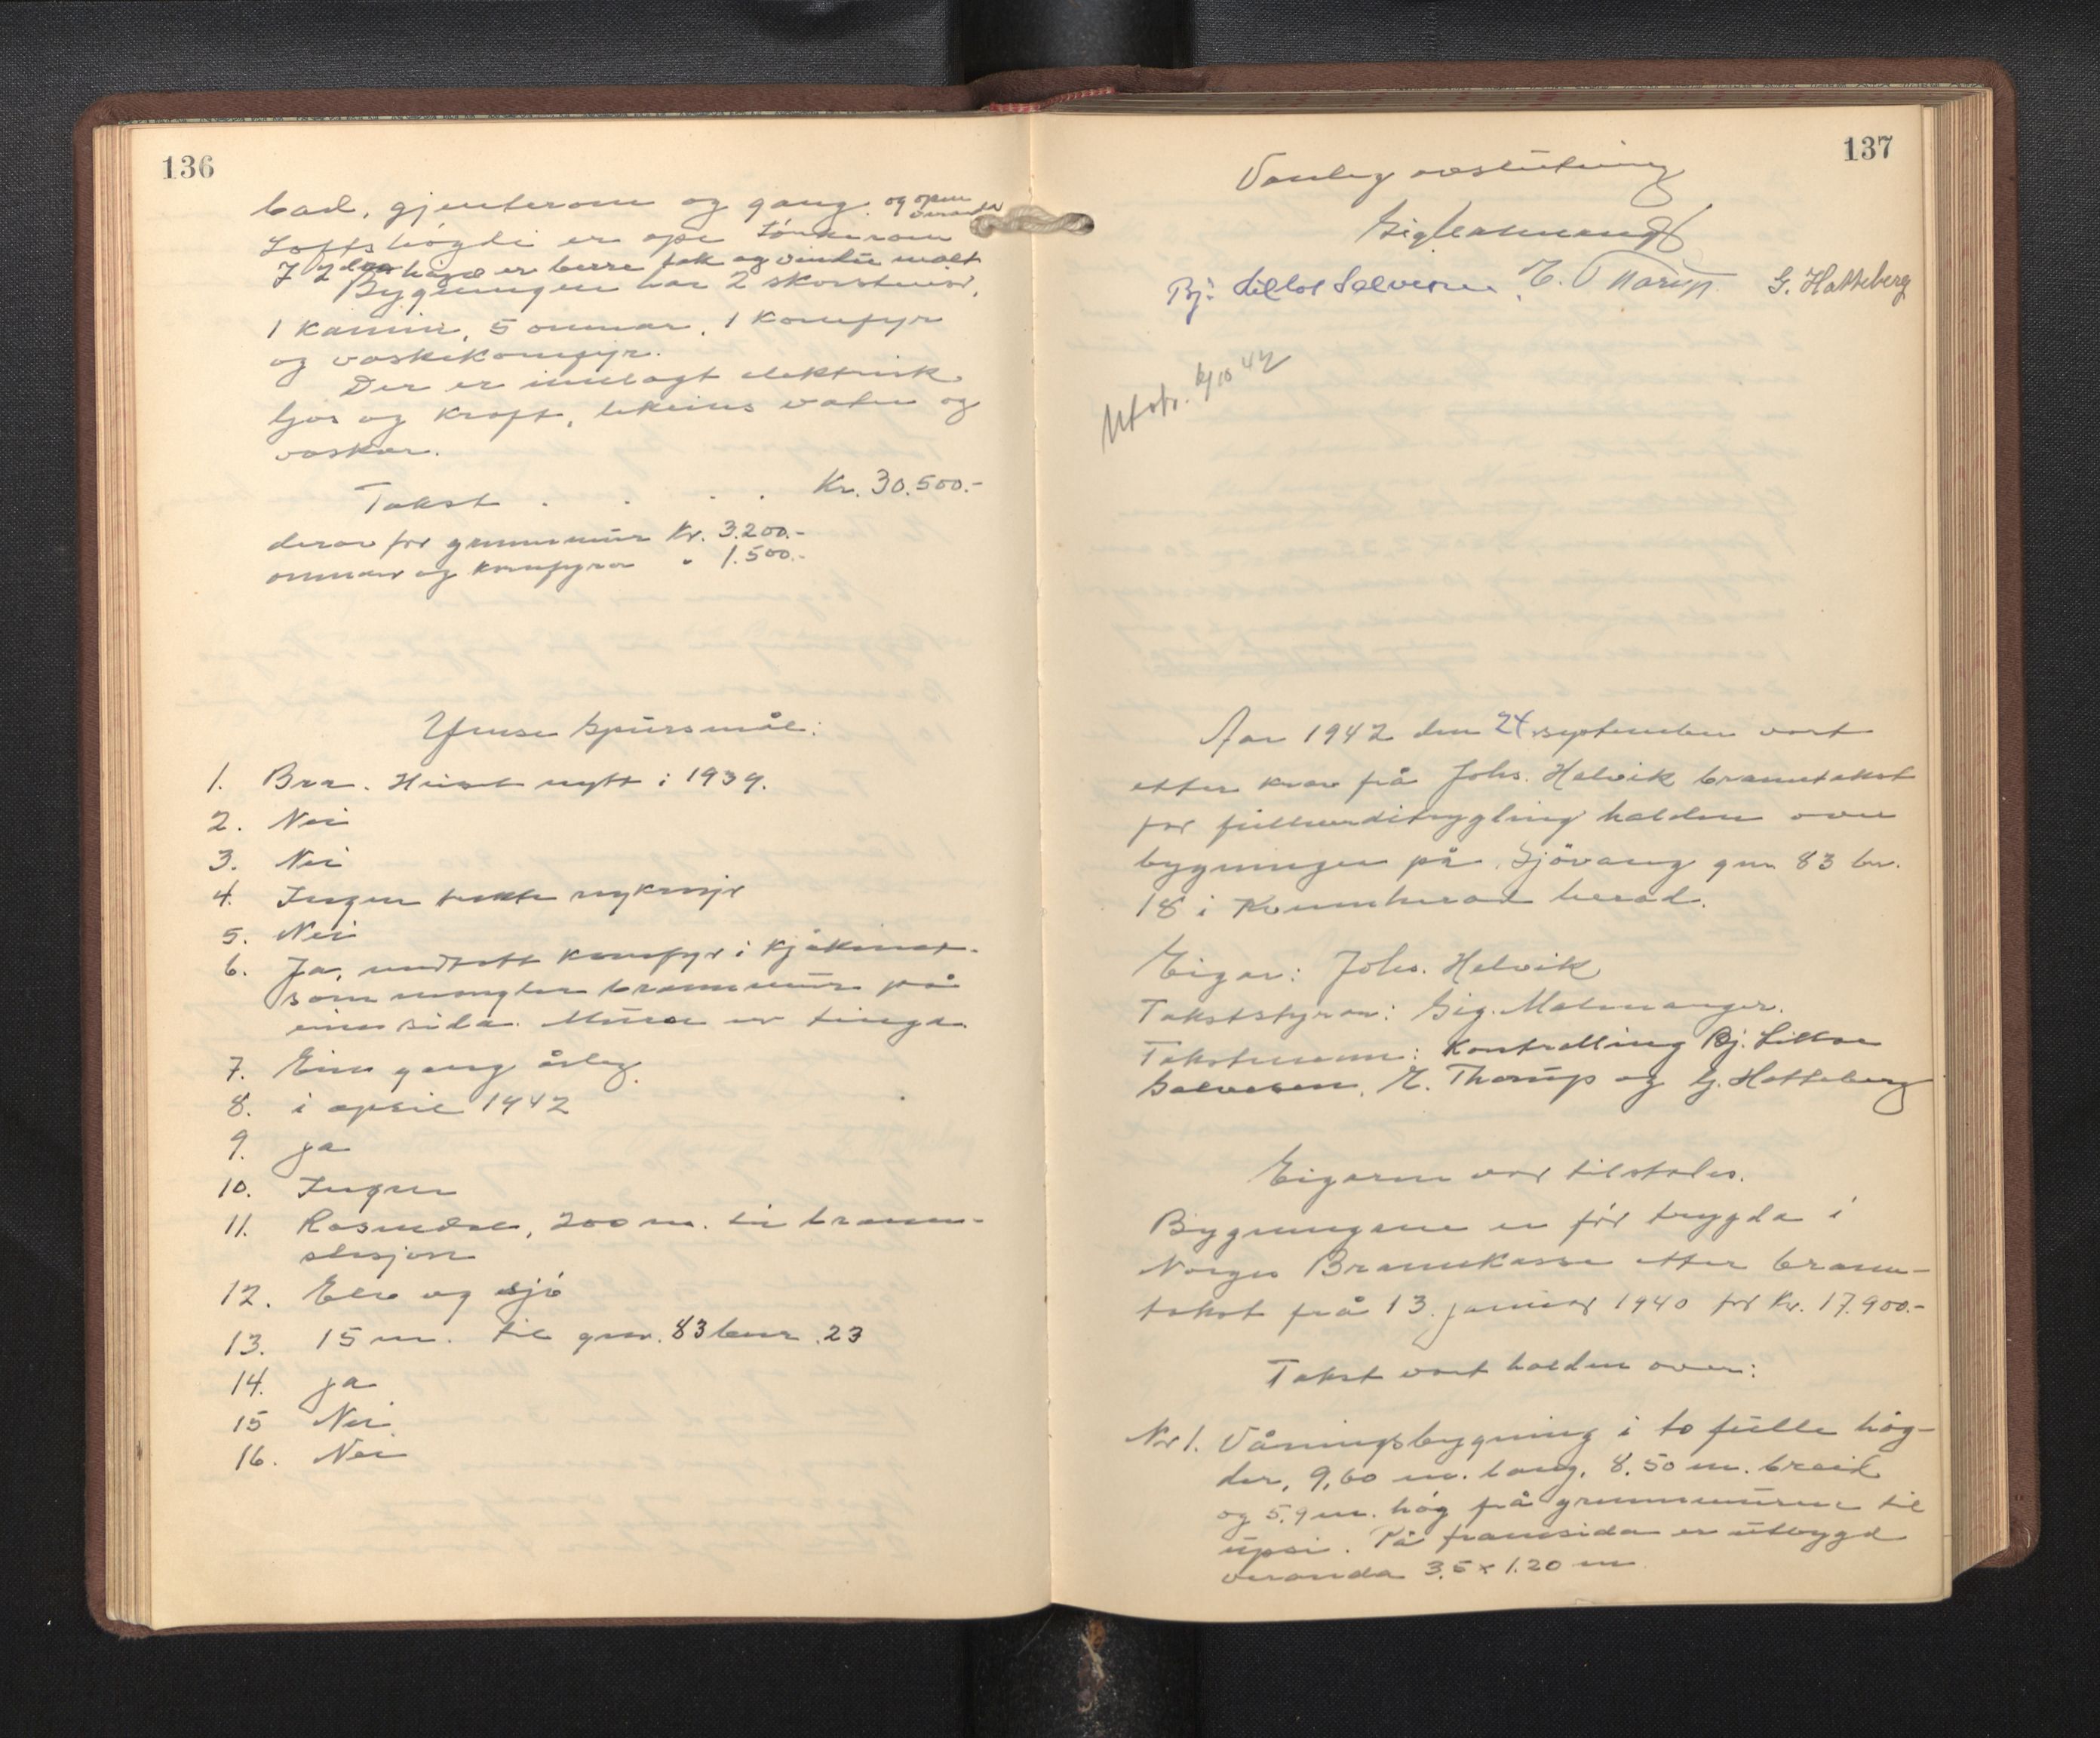 136
bad, gjenterom og gang. og open
veranda
Loftshøgdi er ope tørkerom
I 2dre høgd er berre tak og vindu malt
Bygningen har 2 skorsteinar,
1 kamin, 5 omnar, 1 komfyr
og vaskekomfyr.
Der er innlagt elektrisk
ljos og kraft, likeins vatn og
vaskar.
Takst . . . . Kr. 30.500.-
derav for grunnmur Kr. 3.200.-
omnar og komfyrar " 1.500.-
Ymse spursmål:
1. Bra. Huset nytt i 1939.
2. Nei
3. Nei
4. Ingen røykrøyr
5. Nei
6. Ja, undtatt komfyr i kjøkenet
som manglar brannmur på
eine sida. Muren er tinga.
7. Ein gang årleg.
8. i april 1942
9. ja
10. Ingen
11. Rosendal, 200 m. til brann-
stasjon
12. Elv og sjø
13. 15 m. til gnr. 83 bnr. 23
14. ja
15 Nei
16. Nei
137
Vanleg avslutning
Sig Malmanger
Bj. Lillos Salvesen E. Thorup G. Hatteberg
Utskr. 6/10 42
Aar 1942 den 24. september vart
etter krav frå Johs. Helvik branntakst
for fullverditrygling halden over
bygningen på Sjøvang gnr. 83 bnr.
18 i Kvinnherad herad.
Eigar: Johs. Helvik
Takststyrar: Sig. Malmanger.
Takstmenn: Kontrolling Bj. Lillos
Salvesen, E. Thorup og G. Hatteberg
Eigaren var tilstades.
Bygningane er før trygda i
Norges Brannkasse etter brann-
takst frå 13. januar 1940 for Kr. 17.900.-
Takst vart halden over:
Nr 1. Våningsbygning i to fulle høg-
der, 9,60 m. lang, 8.50 m. breid
og 5.9 m. høg frå grunnmuren til
upsi. På framsida er utbygd
veranda 3.5 x 1.20 m